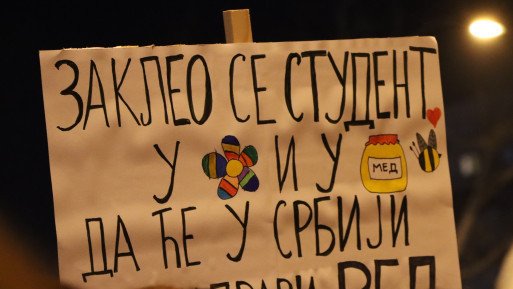 ЗАКЛЕО СЕ СТУДЕНТ
У И У МЕД
ДА ЋЕ У СРБИЈИ
РЕД